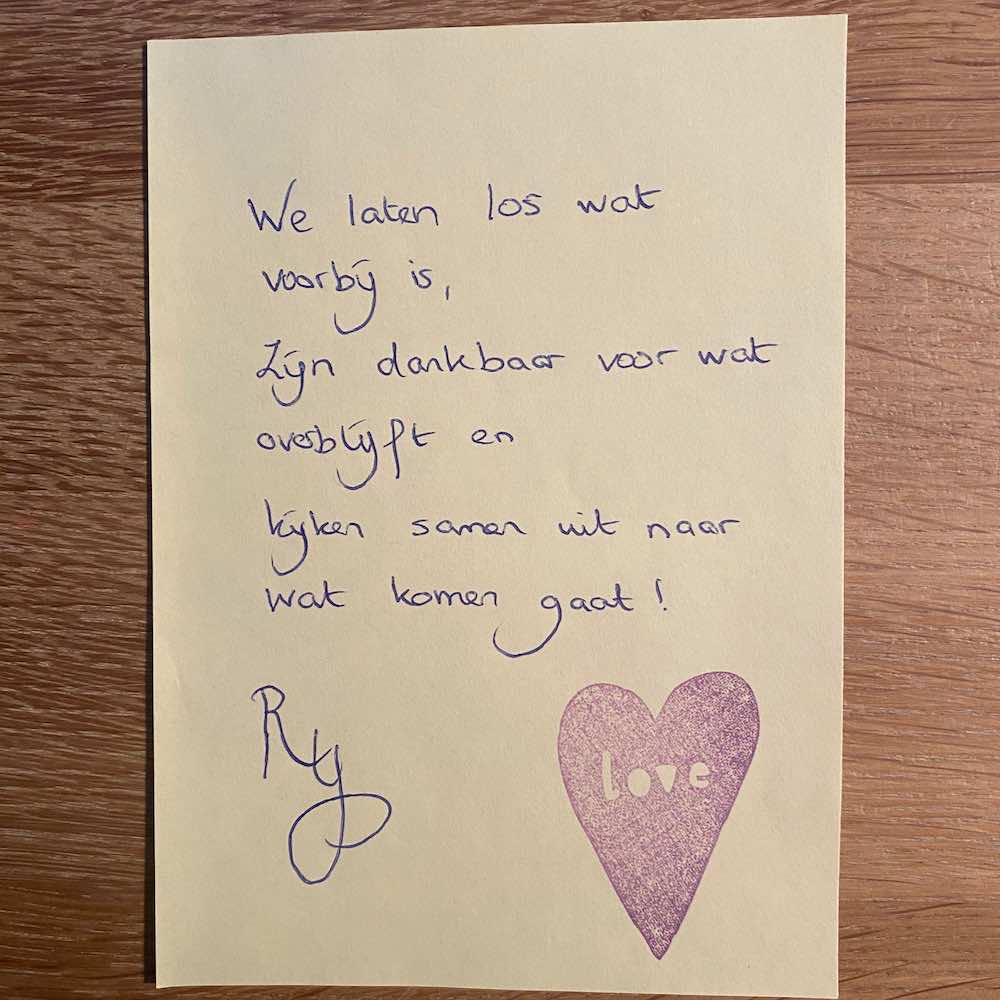 We laten los wat
voorbij is,
Zijn dankbaar voor wat
overblijft en
kijken samen uit naar
wat komen gaat!
love